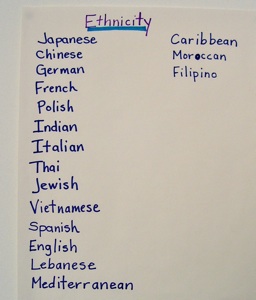 Ethnicity
Japanese
Chinese
German
French
Polish
Indian
Italian
Thai
Jewish
Vietnamese
Spanish
English
Lebanese
Mediterranean
Caribbean
Moroccan
Filipino